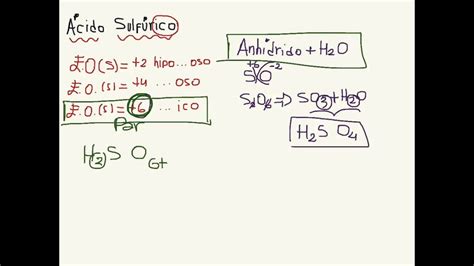 Ácido Sulfúrico
E.O(S)=+2 hipo...oso
E.O.(S)=+4 ...oso
E.O.(S)=+6 ...ico
Par
H2S O6+
Anhidrido + H2O
+6 -2
S O
S2O6 => SO3+H2O
H2S O4